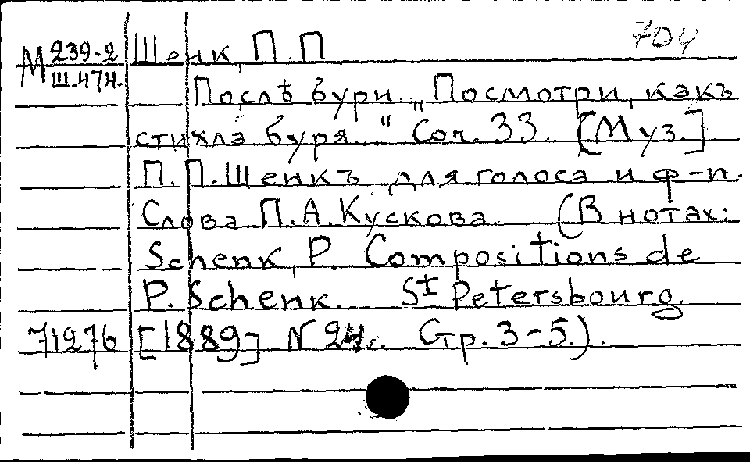 704
М 239-2 Шенк, П. П
Ш.474. Послѣ бури. „Посмотри, какъ
стихла буря." Соч. 33. [Муз.]
П. П. Шенкъ для голоса и ф-п.
Слова П. А. Кускова. (В нотах:
Schenk, P. Compositions de
P. Schenk. St Petersbourg.
71276 [1889] N 24. Стр. 3-5.).